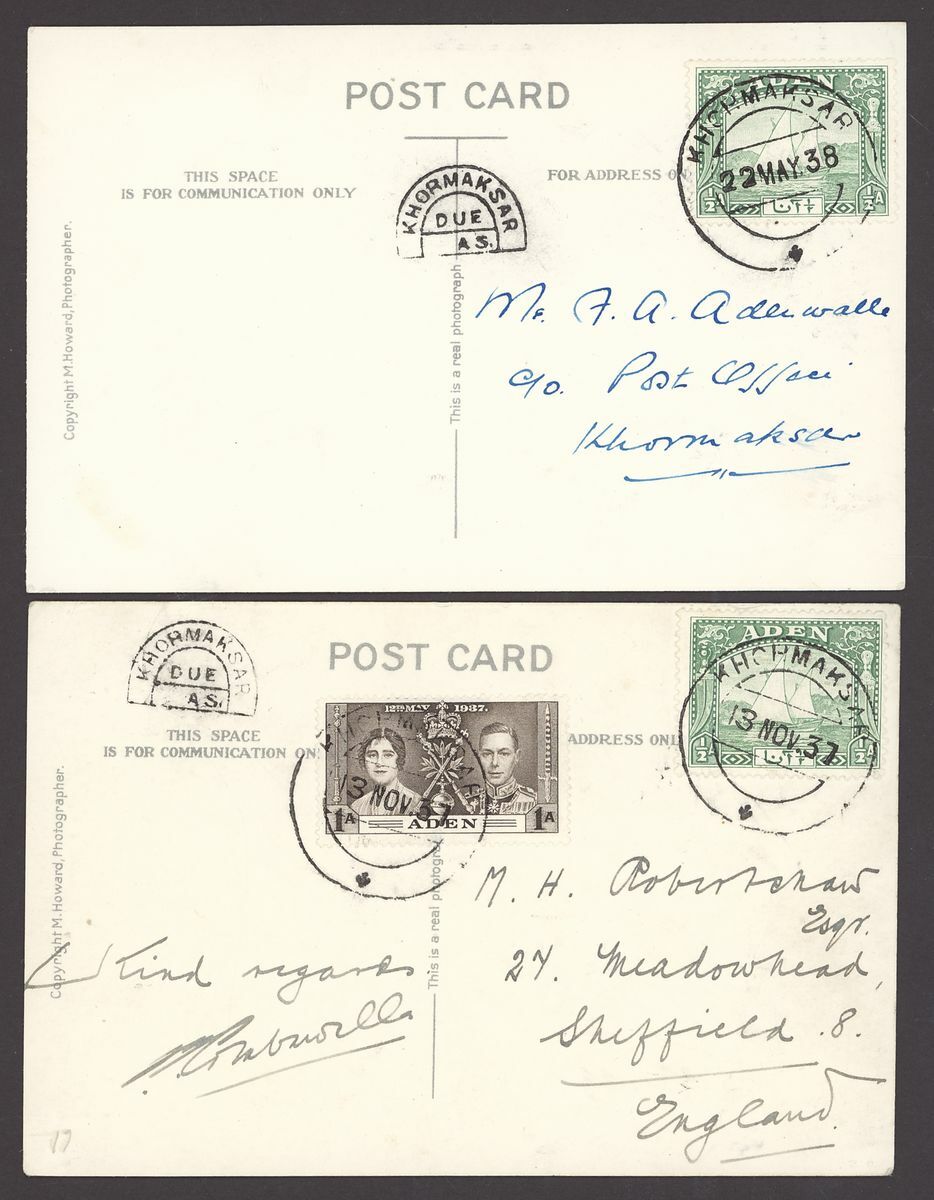 POST CARD
THIS SPACE
IS FOR COMMUNICATION ONLY
FOR ADDRESS ON
KHORMAKSAR
DUE
AS.
ADEN
KHORMAKSAR
22 MAY. 38
½
½A
Copyright M. Howard, Photographer.
This is a real photograph
Mr. F. A. Adenwalla
c/o. Post Office
Khormaksar
KHORMAKSAR
DUE
AS.
POST CARD
THIS SPACE
IS FOR COMMUNICATION ON
ADDRESS ONL
12TH MAY 1937.
KHORMAKSAR
13 NOV. 37
1A
ADEN
1A
ADEN
KHORMAKSAR
13 NOV. 37
½
½A
Copyright M. Howard, Photographer.
This is a real photogra
M. H. Robertshaw
Esqr.
27. Meadowhead,
Sheffield .8.
England.
Kind regards
17